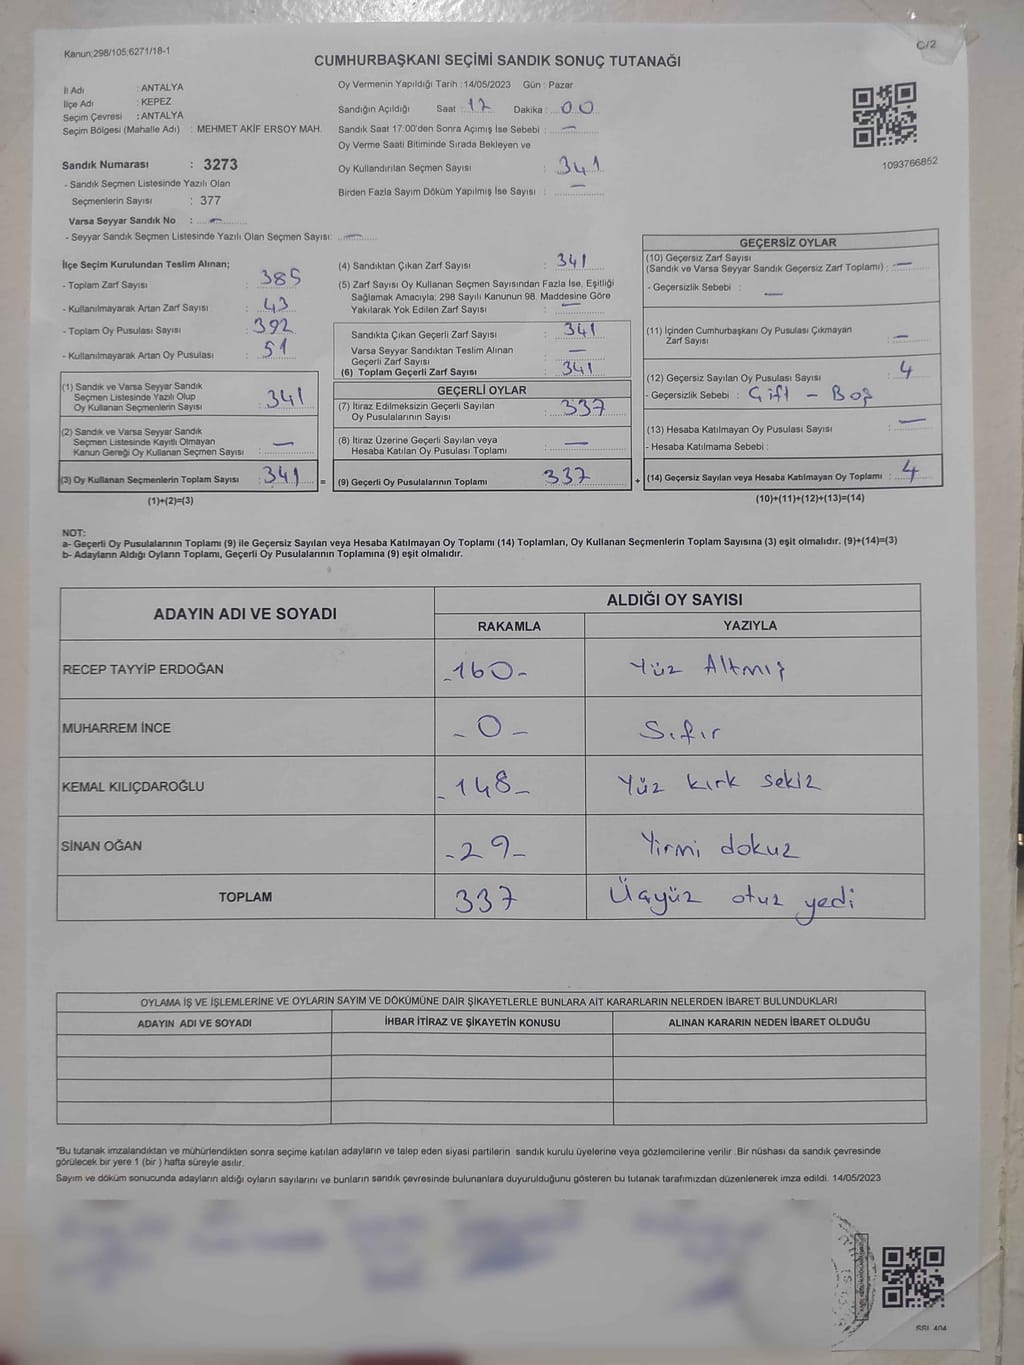 Kanun;298/105;6271/18-1
C/2
CUMHURBAŞKANI SEÇİMİ SANDIK SONUÇ TUTANAĞI
İl Adı : ANTALYA
İlçe Adı : KEPEZ
Seçim Çevresi : ANTALYA
Seçim Bölgesi (Mahalle Adı) : MEHMET AKİF ERSOY MAH.
Sandık Numarası : 3273
- Sandık Seçmen Listesinde Yazılı Olan
Seçmenlerin Sayısı : 377
Varsa Seyyar Sandık No : —
- Seyyar Sandık Seçmen Listesinde Yazılı Olan Seçmen Sayısı: —
Oy Vermenin Yapıldığı Tarih : 14/05/2023 Gün : Pazar
Sandığın Açıldığı Saat : 17 Dakika : 00
Sandık Saat 17:00'den Sonra Açımış İse Sebebi : —
Oy Verme Saati Bitiminde Sırada Bekleyen ve
Oy Kullandırılan Seçmen Sayısı : 341
Birden Fazla Sayım Döküm Yapılmış İse Sayısı : —
1093766852
İlçe Seçim Kurulundan Teslim Alınan;
- Toplam Zarf Sayısı : 385
- Kullanılmayarak Artan Zarf Sayısı : 43
- Toplam Oy Pusulası Sayısı : 392
- Kullanılmayarak Artan Oy Pusulası : 51
(1) Sandık ve Varsa Seyyar Sandık
Seçmen Listesinde Yazılı Olup
Oy Kullanan Seçmenlerin Sayısı : 341
(2) Sandık ve Varsa Seyyar Sandık
Seçmen Listesinde Kayıtlı Olmayan
Kanun Gereği Oy Kullanan Seçmen Sayısı : —
(3) Oy Kullanan Seçmenlerin Toplam Sayısı : 341 =
(1)+(2)=(3)
(4) Sandıktan Çıkan Zarf Sayısı : 341
(5) Zarf Sayısı Oy Kullanan Seçmen Sayısından Fazla İse, Eşitliği
Sağlamak Amacıyla; 298 Sayılı Kanunun 98. Maddesine Göre
Yakılarak Yok Edilen Zarf Sayısı : —
Sandıkta Çıkan Geçerli Zarf Sayısı : 341
Varsa Seyyar Sandıktan Teslim Alınan
Geçerli Zarf Sayısı : —
(6) Toplam Geçerli Zarf Sayısı : 341
GEÇERLİ OYLAR
(7) İtiraz Edilmeksizin Geçerli Sayılan
Oy Pusulalarının Sayısı : 337
(8) İtiraz Üzerine Geçerli Sayılan veya
Hesaba Katılan Oy Pusulası Toplamı : —
(9) Geçerli Oy Pusulalarının Toplamı 337 +
GEÇERSİZ OYLAR
(10) Geçersiz Zarf Sayısı
(Sandık ve Varsa Seyyar Sandık Geçersiz Zarf Toplamı) : —
- Geçersizlik Sebebi : —
(11) İçinden Cumhurbaşkanı Oy Pusulası Çıkmayan
Zarf Sayısı : —
(12) Geçersiz Sayılan Oy Pusulası Sayısı : 4
- Geçersizlik Sebebi : Çift - Boş
(13) Hesaba Katılmayan Oy Pusulası Sayısı : —
- Hesaba Katılmama Sebebi :
(14) Geçersiz Sayılan veya Hesaba Katılmayan Oy Toplamı : 4
(10)+(11)+(12)+(13)=(14)
NOT:
a- Geçerli Oy Pusulalarının Toplamı (9) ile Geçersiz Sayılan veya Hesaba Katılmayan Oy Toplamı (14) Toplamları, Oy Kullanan Seçmenlerin Toplam Sayısına (3) eşit olmalıdır. (9)+(14)=(3)
b- Adayların Aldığı Oyların Toplamı, Geçerli Oy Pusulalarının Toplamına (9) eşit olmalıdır.
ADAYIN ADI VE SOYADI ALDIĞI OY SAYISI
RAKAMLA YAZIYLA
RECEP TAYYİP ERDOĞAN -160- Yüz Altmış
MUHARREM İNCE -0- Sıfır
KEMAL KILIÇDAROĞLU -148- Yüz kırk sekiz
SİNAN OĞAN -29- Yirmi dokuz
TOPLAM 337 Üçyüz otuz yedi
OYLAMA İŞ VE İŞLEMLERİNE VE OYLARIN SAYIM VE DÖKÜMÜNE DAİR ŞİKAYETLERLE BUNLARA AİT KARARLARIN NELERDEN İBARET BULUNDUKLARI
ADAYIN ADI VE SOYADI İHBAR İTİRAZ VE ŞİKAYETİN KONUSU ALINAN KARARIN NEDEN İBARET OLDUĞU
*Bu tutanak imzalandıktan ve mühürlendikten sonra seçime katılan adayların ve talep eden siyasi partilerin sandık kurulu üyelerine veya gözlemcilerine verilir. Bir nüshası da sandık çevresinde
görülecek bir yere 1 (bir ) hafta süreyle asılır.
Sayım ve döküm sonucunda adayların aldığı oyların sayılarını ve bunların sandık çevresinde bulunanlara duyurulduğunu gösteren bu tutanak tarafımızdan düzenlenerek imza edildi. 14/05/2023